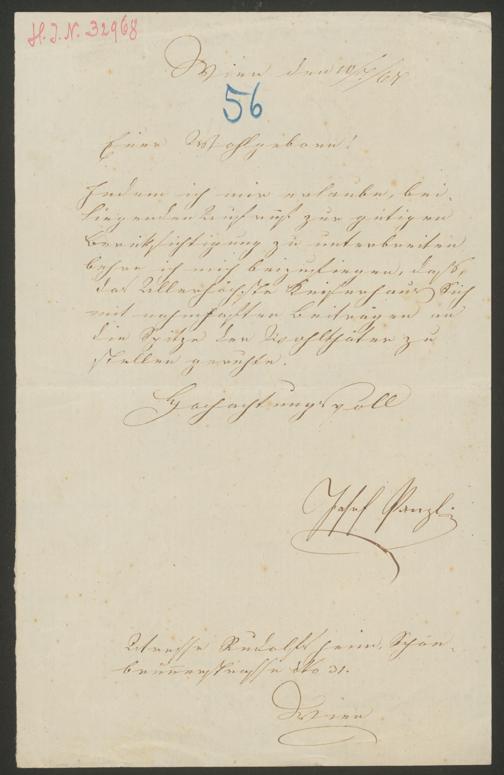 H. I. N. 32968
Wien den 10/7/67
56
Euer Wohlgeboren!
Indem ich mir erlaube, bei-
liegenden Aufruf zur gütigen
Berücksichtigung zu unterbreiten
beehre ich mich beizufügen, daß,
das Allerhöchste Kaiserhaus Sich
mit namhaften Beitragen an
die Spitze der Wohlthäter zu
stellen geruhte.
Hochachtungsvoll
Josef
Adresse Rudolfsheim, Schön-
brunnerstrasse No 31.
Wien